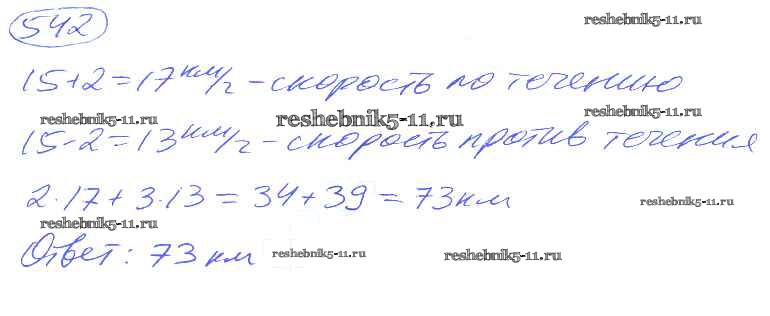 542
reshebnik5-11.ru
15+2=17 км/г - скорость по течению
reshebnik5-11.ru reshebnik5-11.ru reshebnik5-11.ru
15-2=13 км/г - скорость против течения
2·17+3·13=34+39=73 км
reshebnik5-11.ru reshebnik5-11.ru
Ответ: 73 км
reshebnik5-11.ru reshebnik5-11.ru